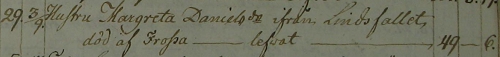 29. 3/9. Hustru Margreta Danielsdr ifrån Lindsfallet,
död af Frossa —— lefvat —— 49 — 6.